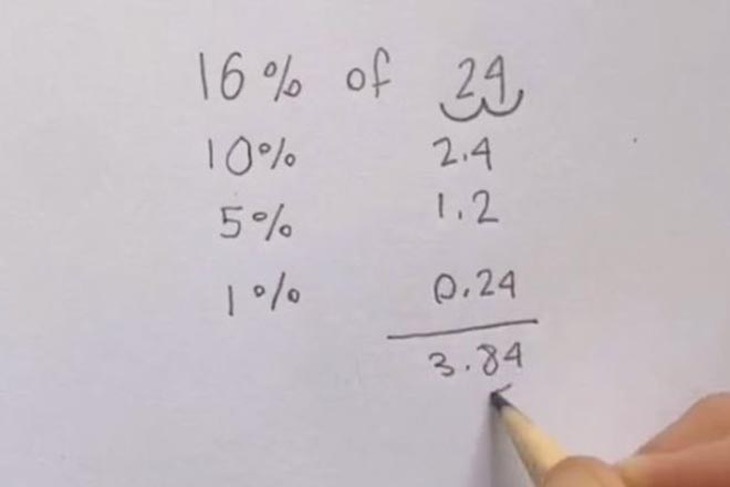 16% of 24
10% 2.4
5% 1.2
1% 0.24
3.84